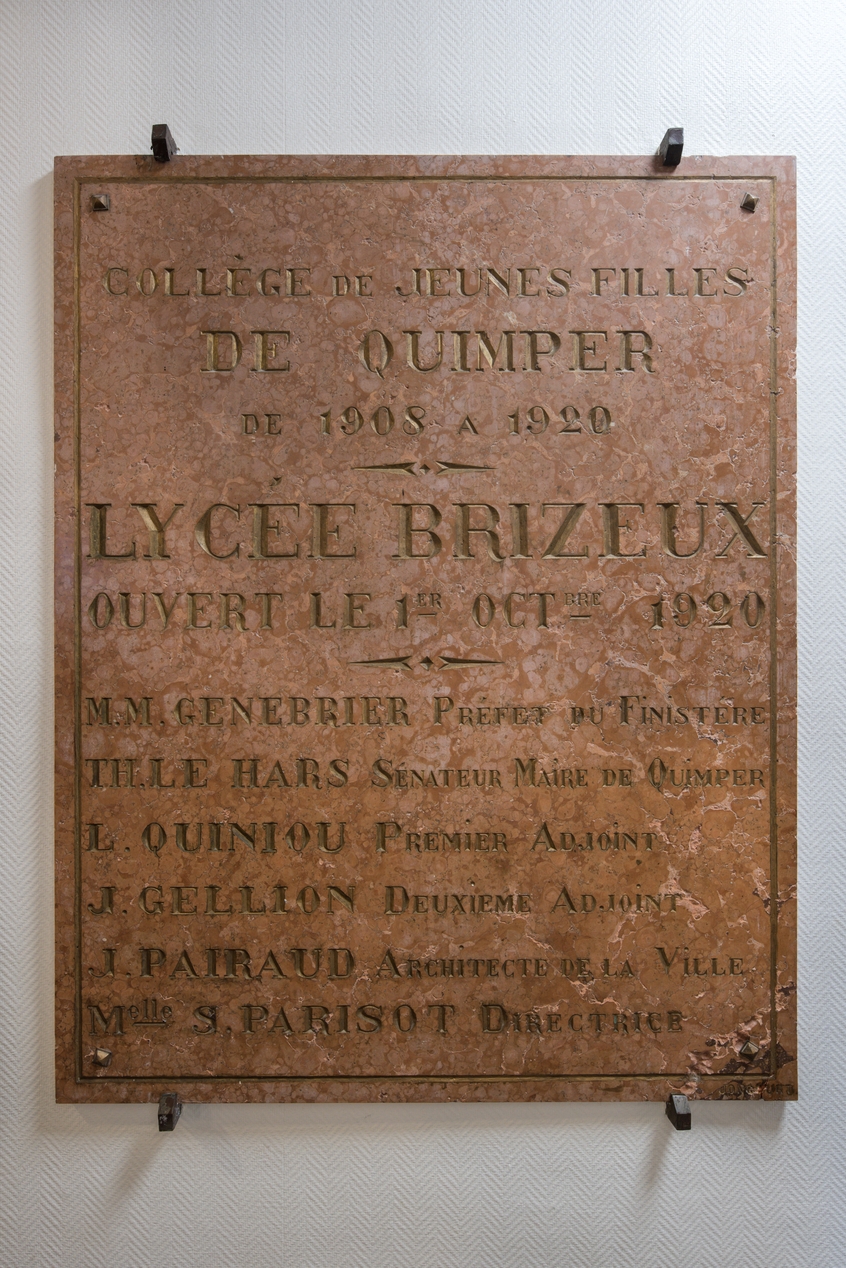 COLLÈGE DE JEUNES FILLES
DE QUIMPER
DE 1908 A 1920
LYCÉE BRIZEUX
OUVERT LE 1ER OCTBRE 1920
M.M. GENEBRIER PRÉFET DU FINISTÉRE
TH. LE HARS SÉNATEUR MAIRE DE QUIMPER
L. QUINIOU PREMIER ADJOINT
J. GELLION DEUXIEME ADJOINT
J. PAIRAUD ARCHITECTE DE LA VILLE
Melle S. PARISOT DIRECTRICE